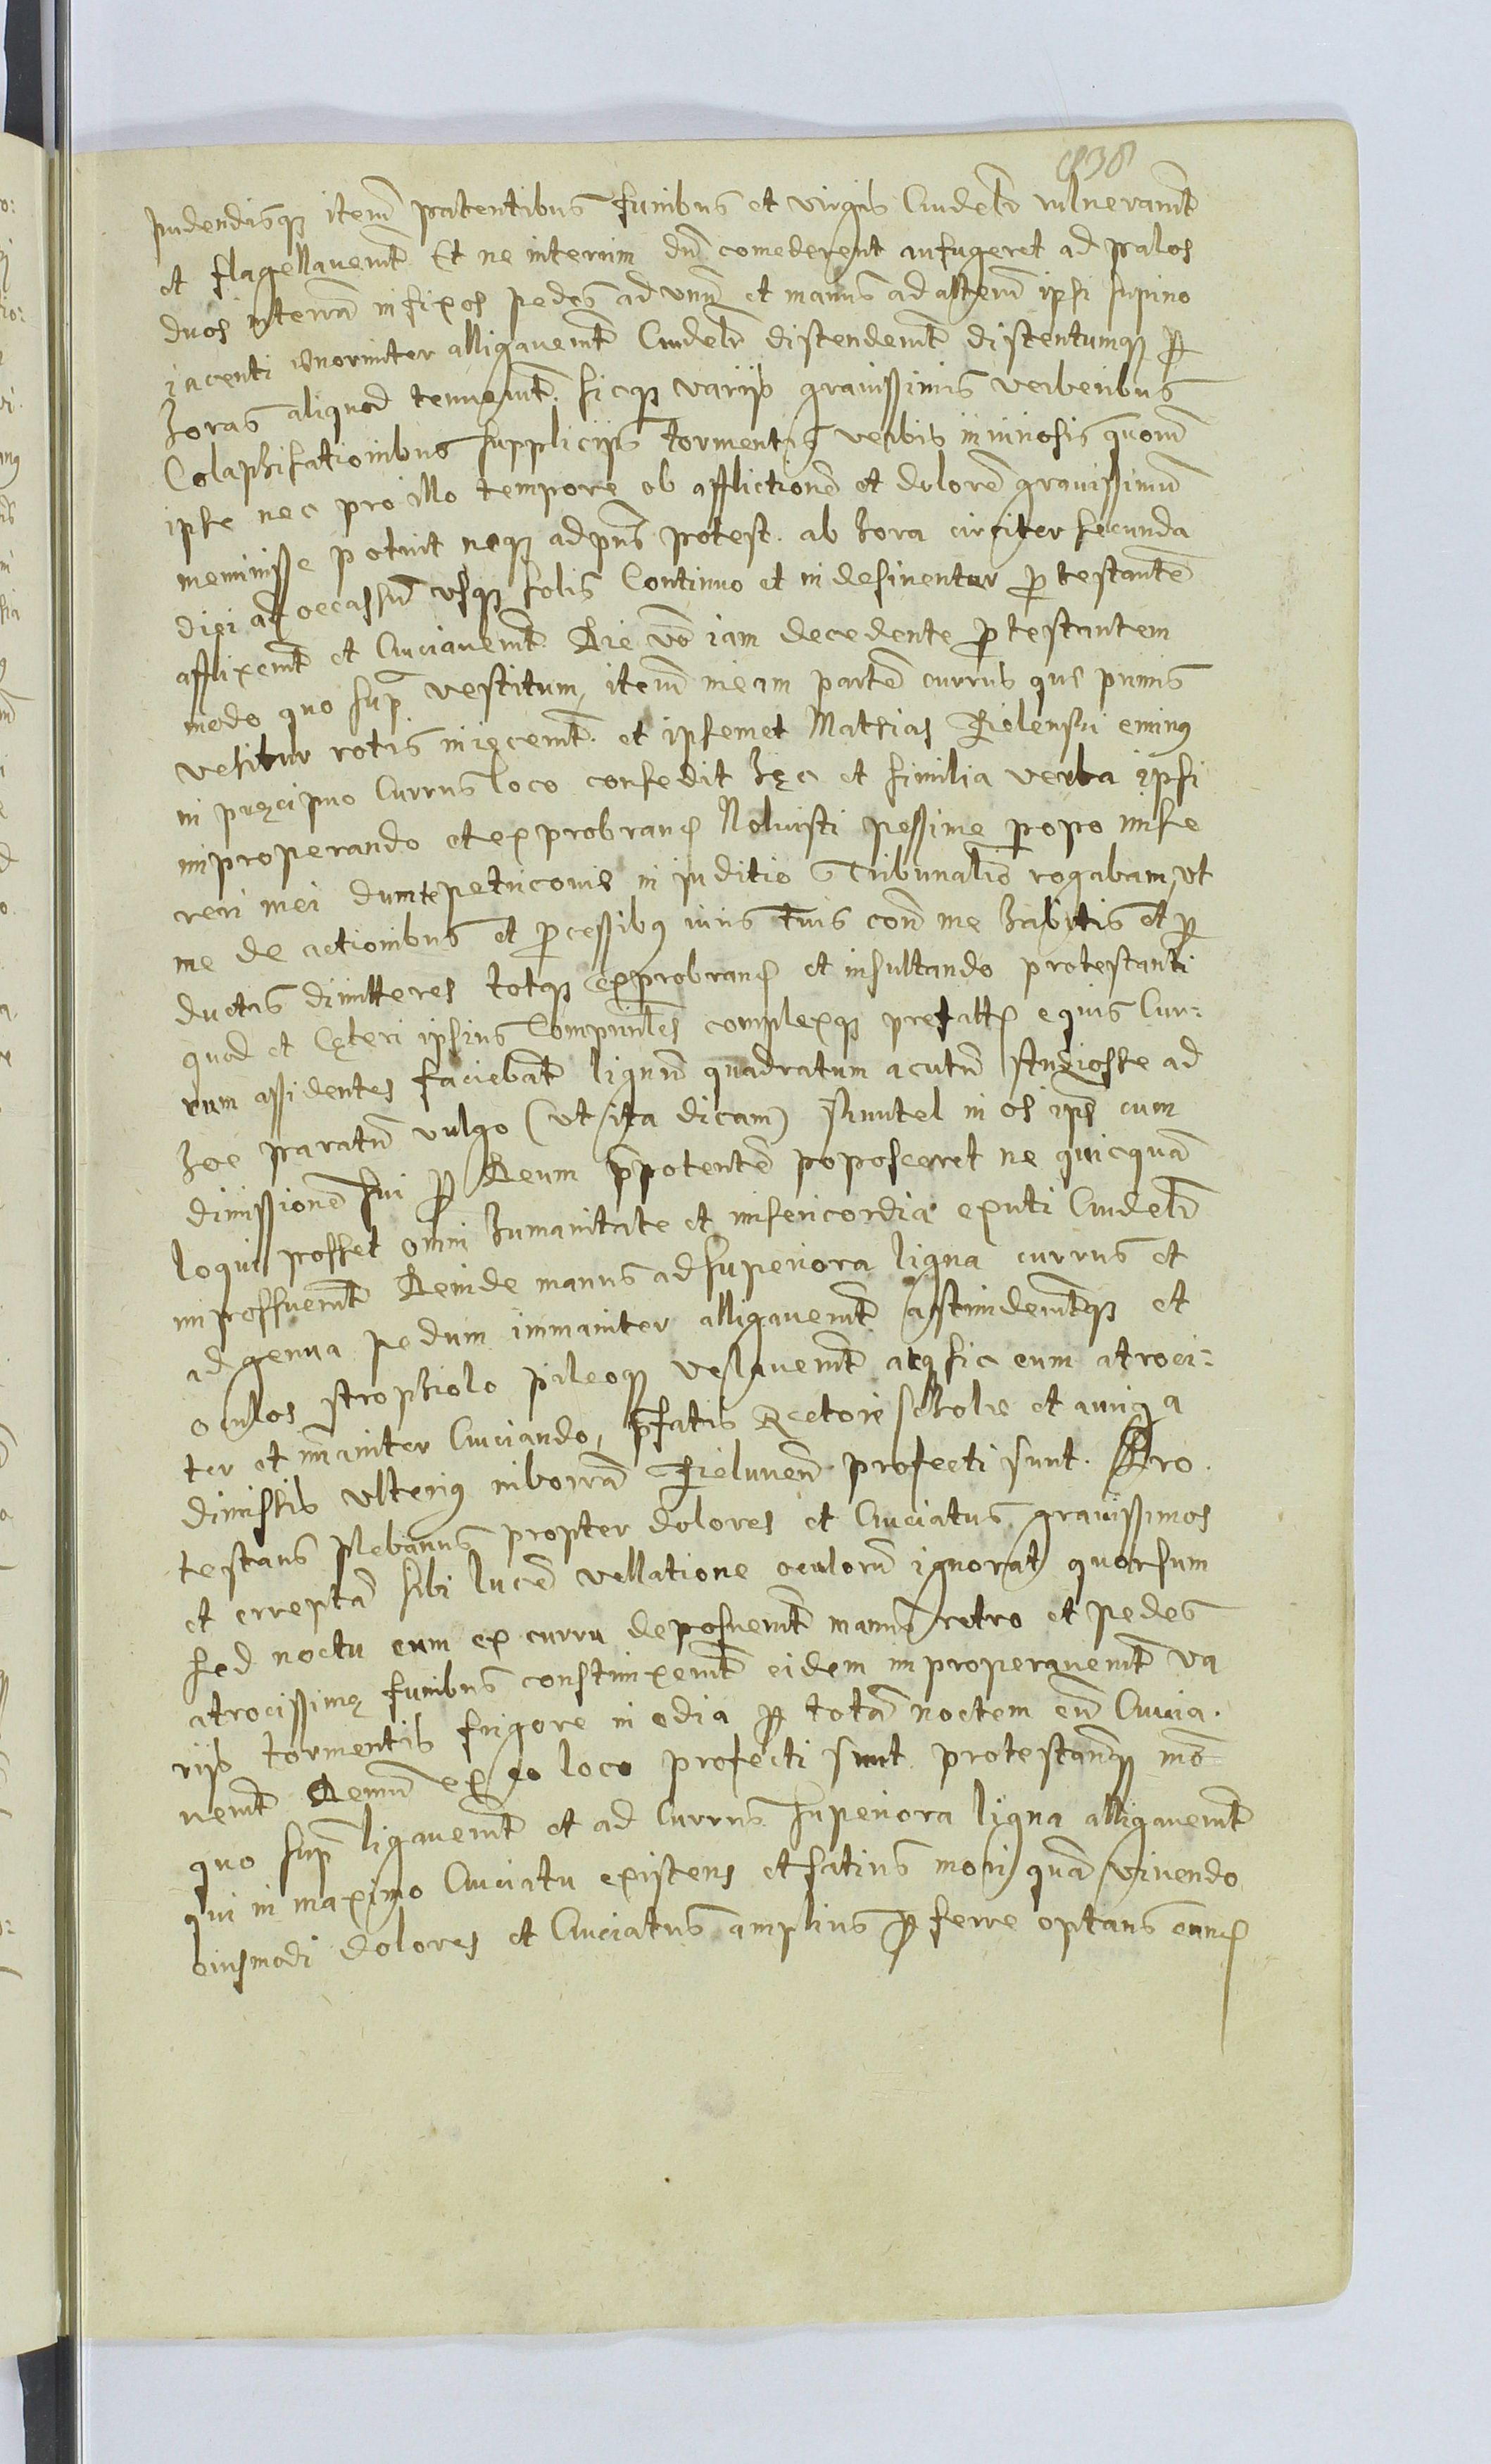 838
pudendasq item patentibus funibus et virgis Crudelr vulnerarunt
et flagellaverunt Et ne interim du comederent aufugeret ad palos
duos in terra infixos pedes ad unu et manus ad alteru ipsi supino
iacenti Enormiter alligaverunt Crudelr distenderunt distentumq p
horas aliquod tenuerunt. sicq varijs gravissimis verberibus
Colaphisationibus supplicijs tormentis verbis iniuriosis quoru
ipse nec pro illo tempore ob afflictione et dolore gravissimu
meminisse potuit neq ad pns potest. ab hora circiter secunda
diei ad occassu usq solis Continuo et indesinenter ptestante
afflixerunt et Cruciaverunt Die vo iam decedente ptestantem
modo quo supr vestitum, item in eam parte currus que primis
vehitur rotis iniecerunt. et ipsemet Mathias Kielenski eminus
in precipuo Currus loco consedit hęc et similia verba ipsi
improperando et exprobran Noluisti pessime popo mise
reri mei dum te petii coram in iuditio Tribunalis rogabam, ut
me de actionibus et pcessibus iuris tuis con me habitis et p
ductis dimitteres totq exprobran et insultando protestanti
quod et Ceteri ipsius Comprincipales complexq prefatt equis Cur:
rum assidentes faciebat lignum quadratum acutu studiosse ad
hoc paratu vulgo (ut ita dicam) knutel in os ips cum
dimissione sui p Deum ppotente poposceret ne quicqua
loqui posset omni humanitate et misericordia exuti Crudelr
impossuerunt Deinde manus ad superiora ligna currus et
ad genua pedum immaniter alligaverunt astrinxeruntq et
oculos strophiolo pileoq velaverunt atq sic eum atroci:
ter et imaniter Cruciando, pfatis Rectore scholae et auriga
dimissis ulterius in borra Kielunen profecti sunt. Pro
testans plebanus propter dolores et Cruciatus gravissimos
et errepta sibi luce vellatione oculoru ignorat quorsum
sed noctu eum ex curru deposuerunt manus retro et pedes
atrocissimę funibus constrinxerunt eidem improperaverunt va
rijs tormentis frigore in edia p tota noctem eu Crucia.
verunt Demu ex eo loco profecti sunt protestanq mo
quo supr ligaverunt et ad Currus superiora ligna alligaverunt
qui in maximo Cruciatu existens et satius mori qua vivendo
eiusmodi dolores et Cruciatus amplius pferre optans eun